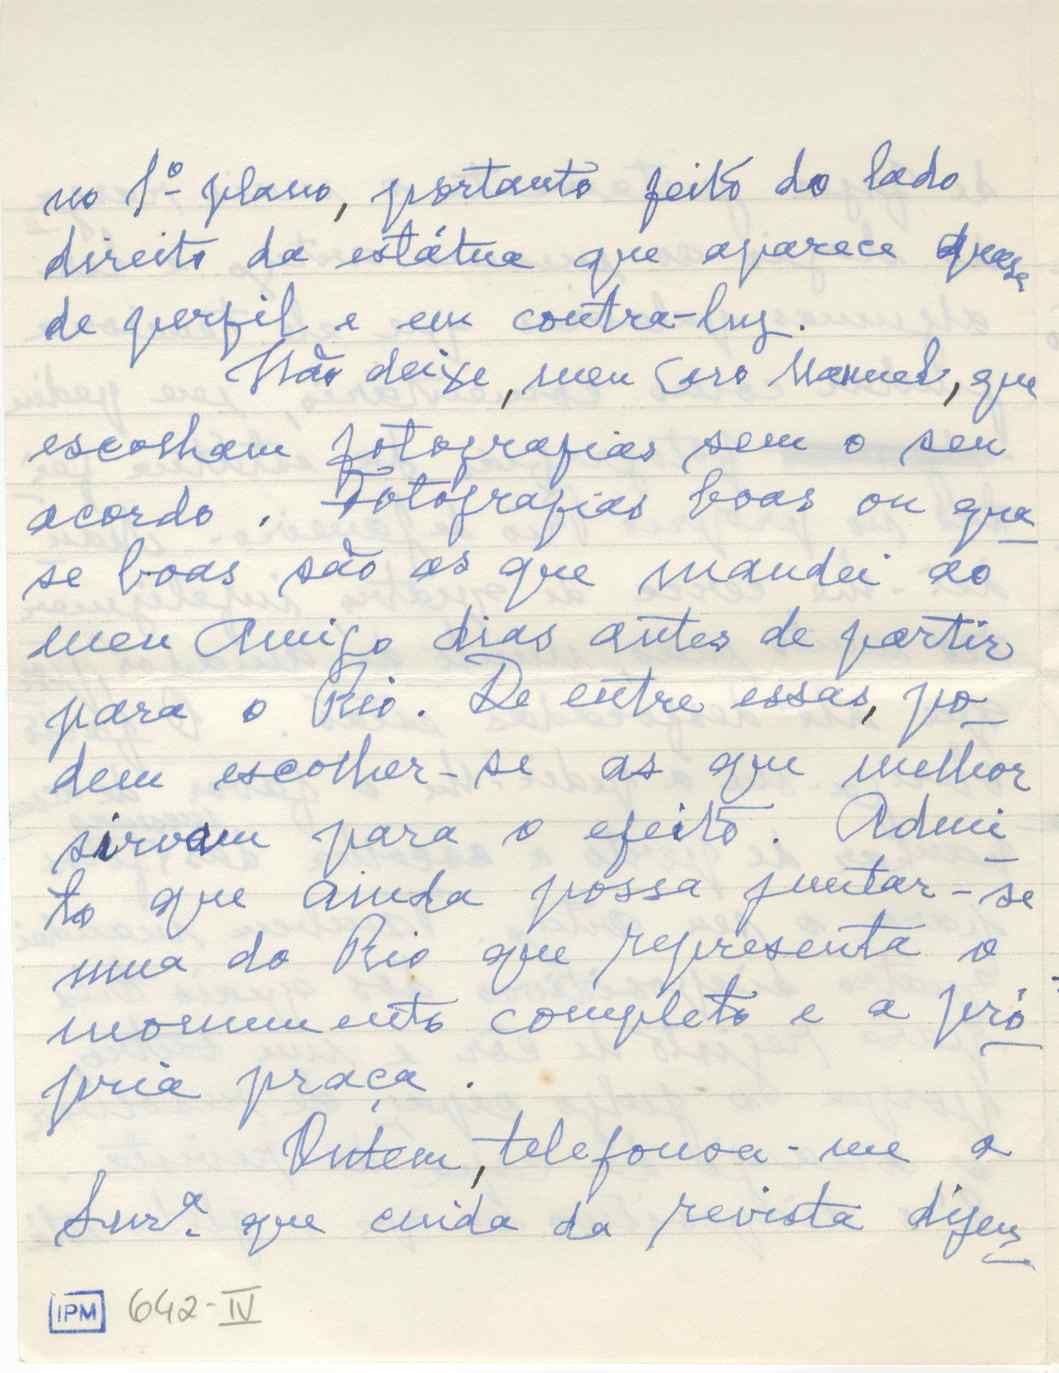 no 1º plano, portanto feito do lado
direito da estátua que aparece quase
de perfil e em contra-luz.
Não deixe, meu Caro Manuel, que
escolham fotografias sem o seu
acordo. Fotografias boas ou qua
se boas são as que mandei ao
meu Amigo dias antes de partir
para o Rio. De entre essas, po
dem escolher-se as que melhor
sirvam para o efeito. Admi
to que ainda possa juntar-se
uma do Rio que representa o
monumento completo e a pró
pria praça.
Ontem, telefonou-me a
Snrª. que cuida da revista dizen
IPM 642-IV